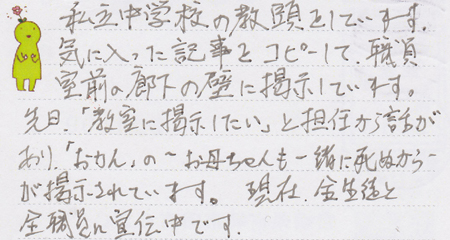 私立中学校の教頭をしています。
気に入った記事をコピーして、職員
室前の廊下の壁に掲示しています。
先日、「教室に掲示したい」と担任から話が
あり、「おかん」の〜お母ちゃんも一緒に死ぬから〜
が掲示されています。 現在、全生徒と
全職員に宣伝中です。